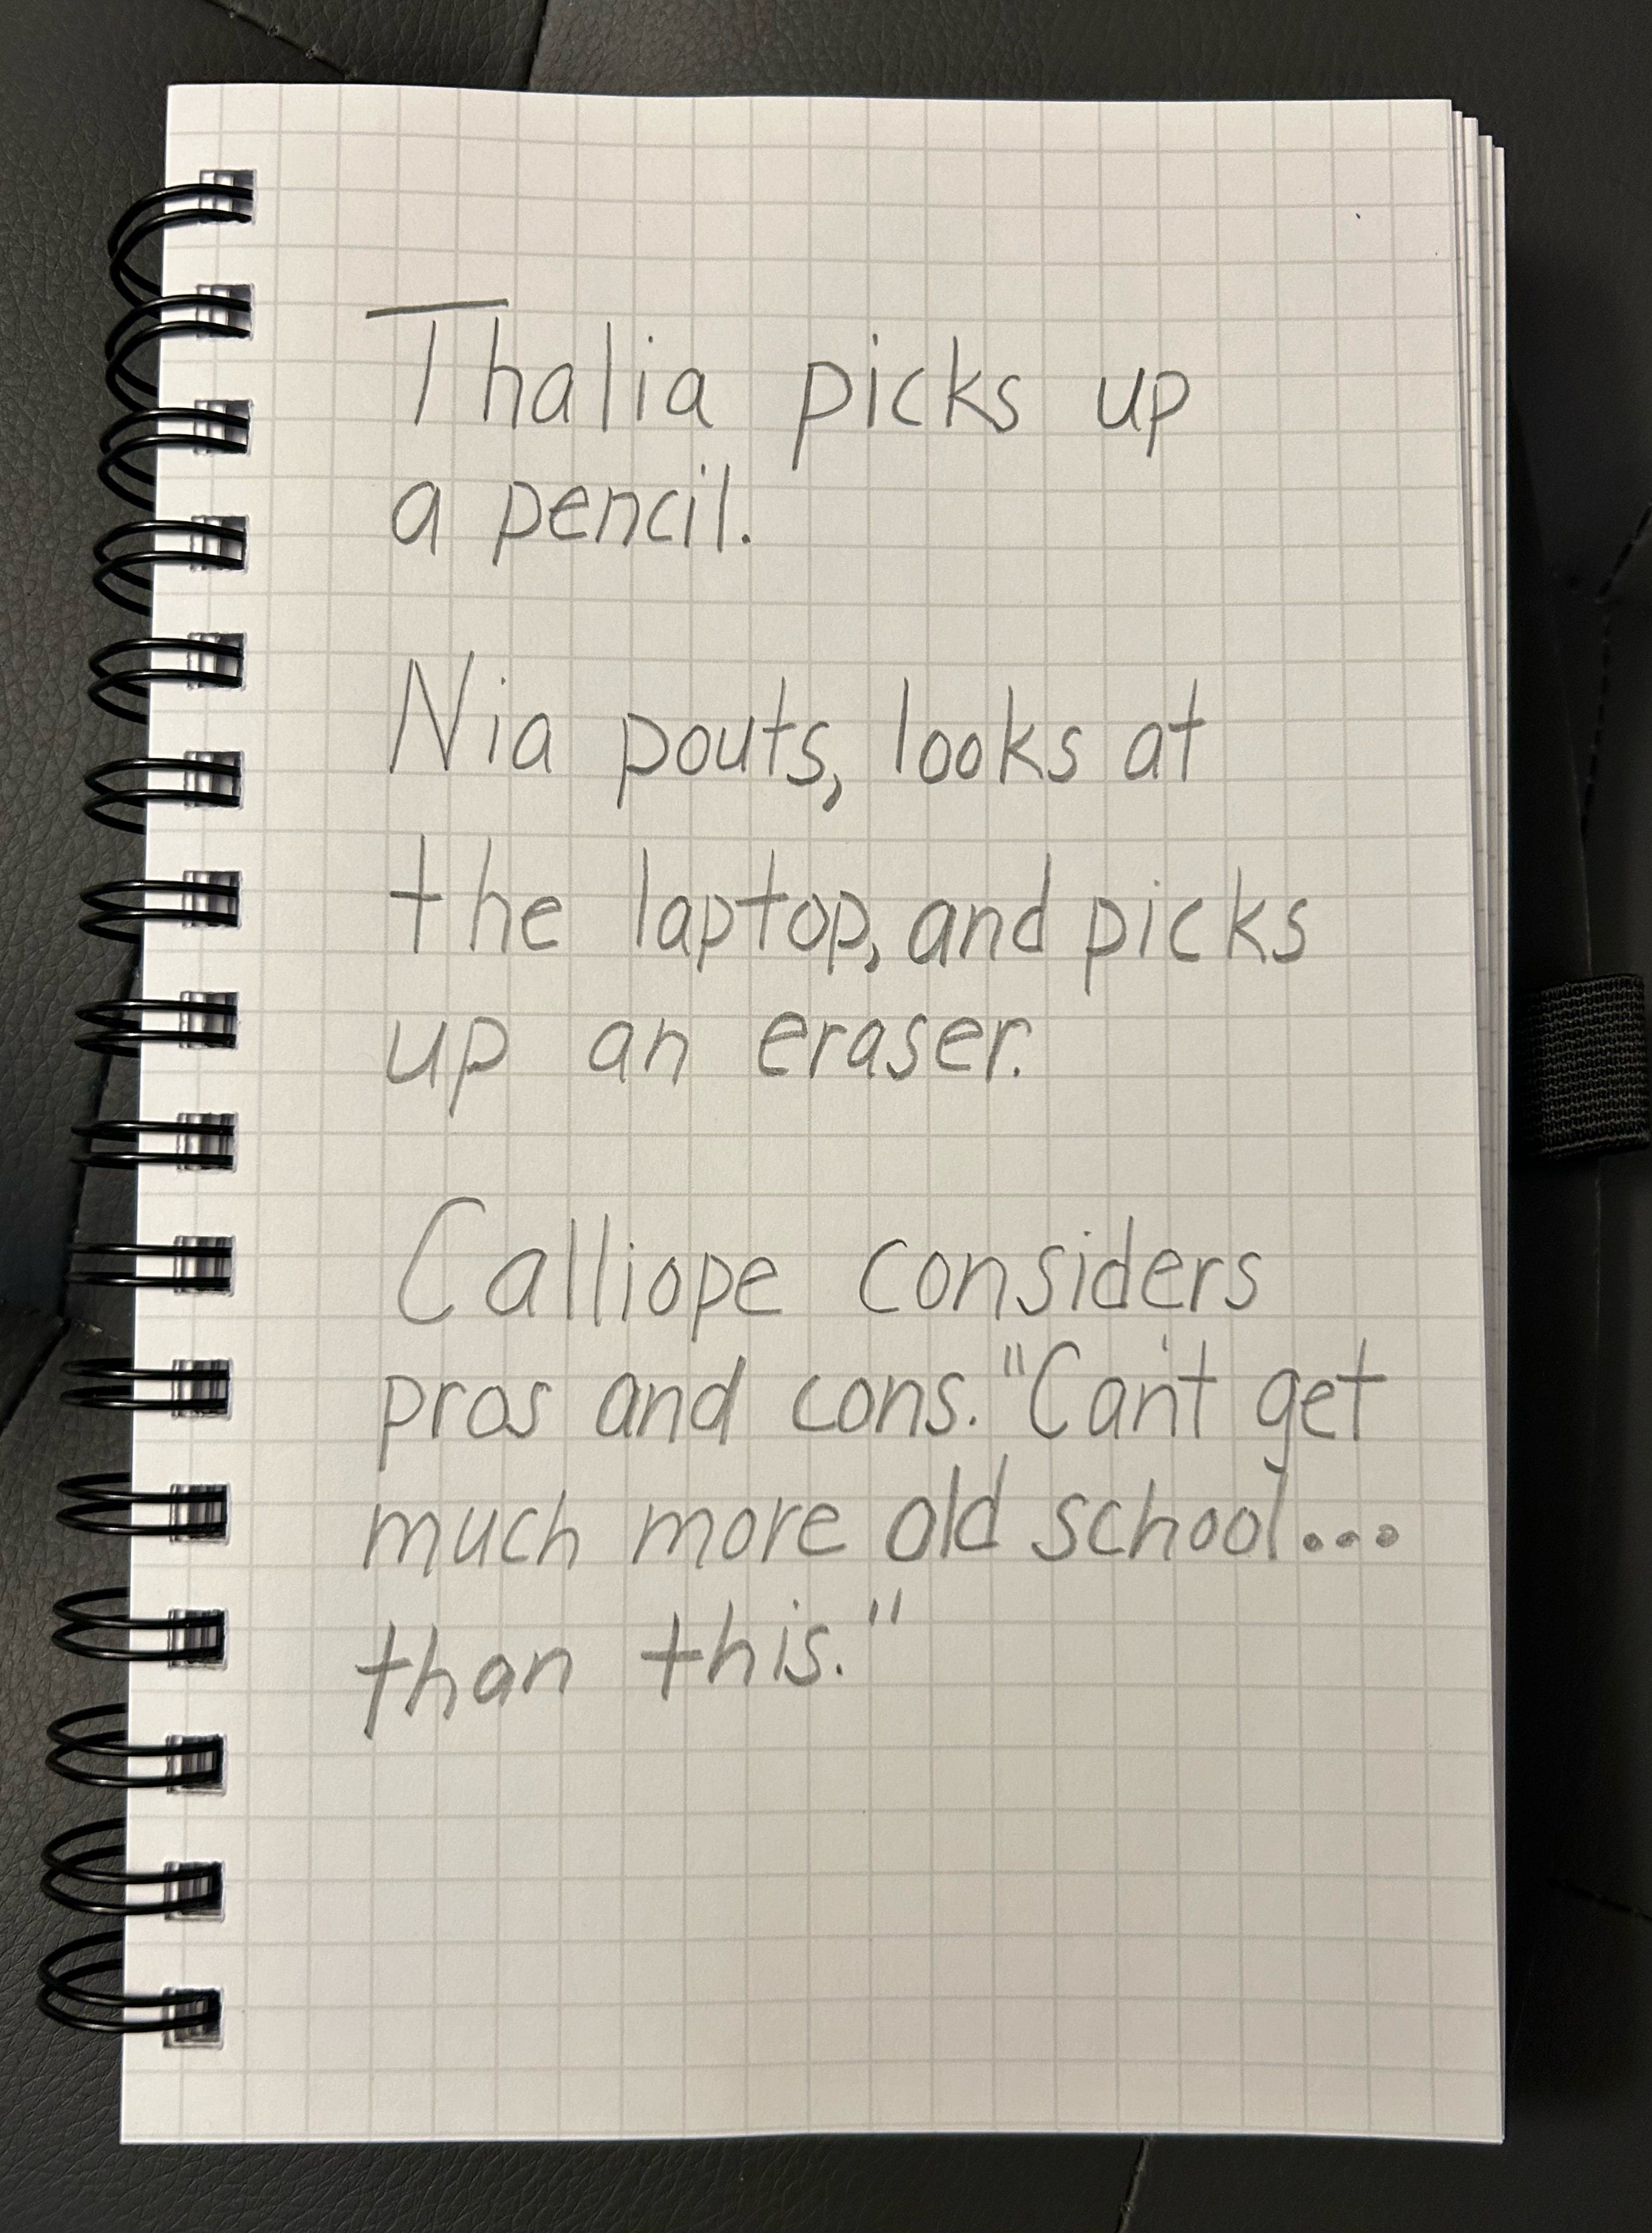 Thalia picks up
a pencil.
Nia pouts, looks at
the laptop, and picks
up an eraser.
Calliope considers
pros and cons. "Can't get
much more old school...
than this."